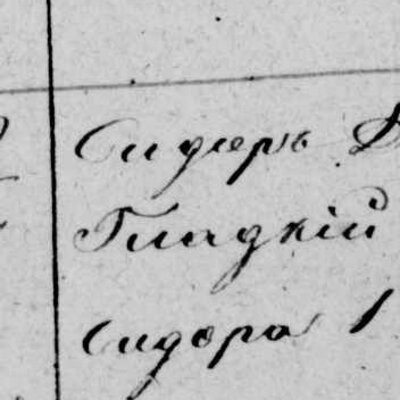 Сидоръ
Гладкій
Сидора 1